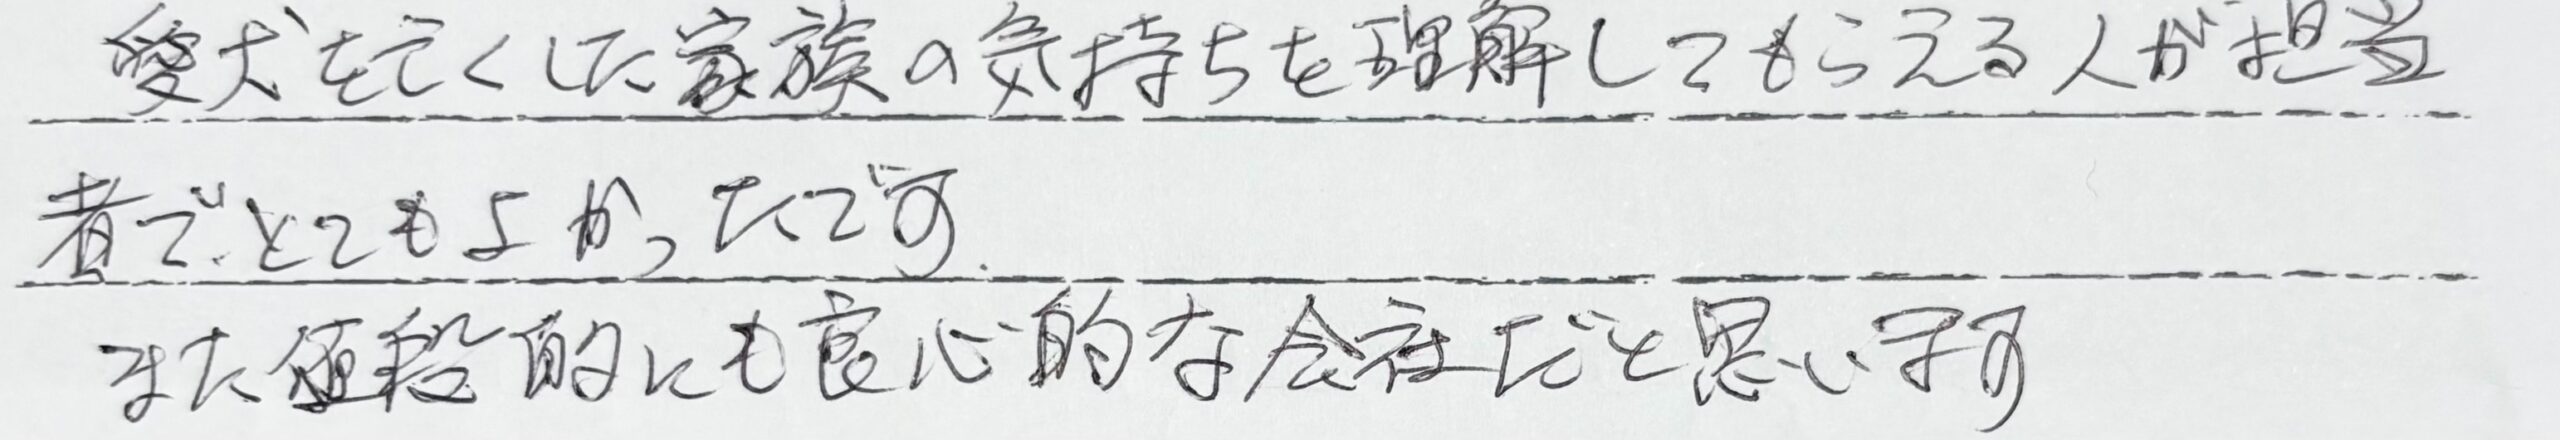 愛犬を亡くした家族の気持ちを理解してもらえる人が担当
者で、とてもよかったです.
また値段的にも良心的な会社だと思います